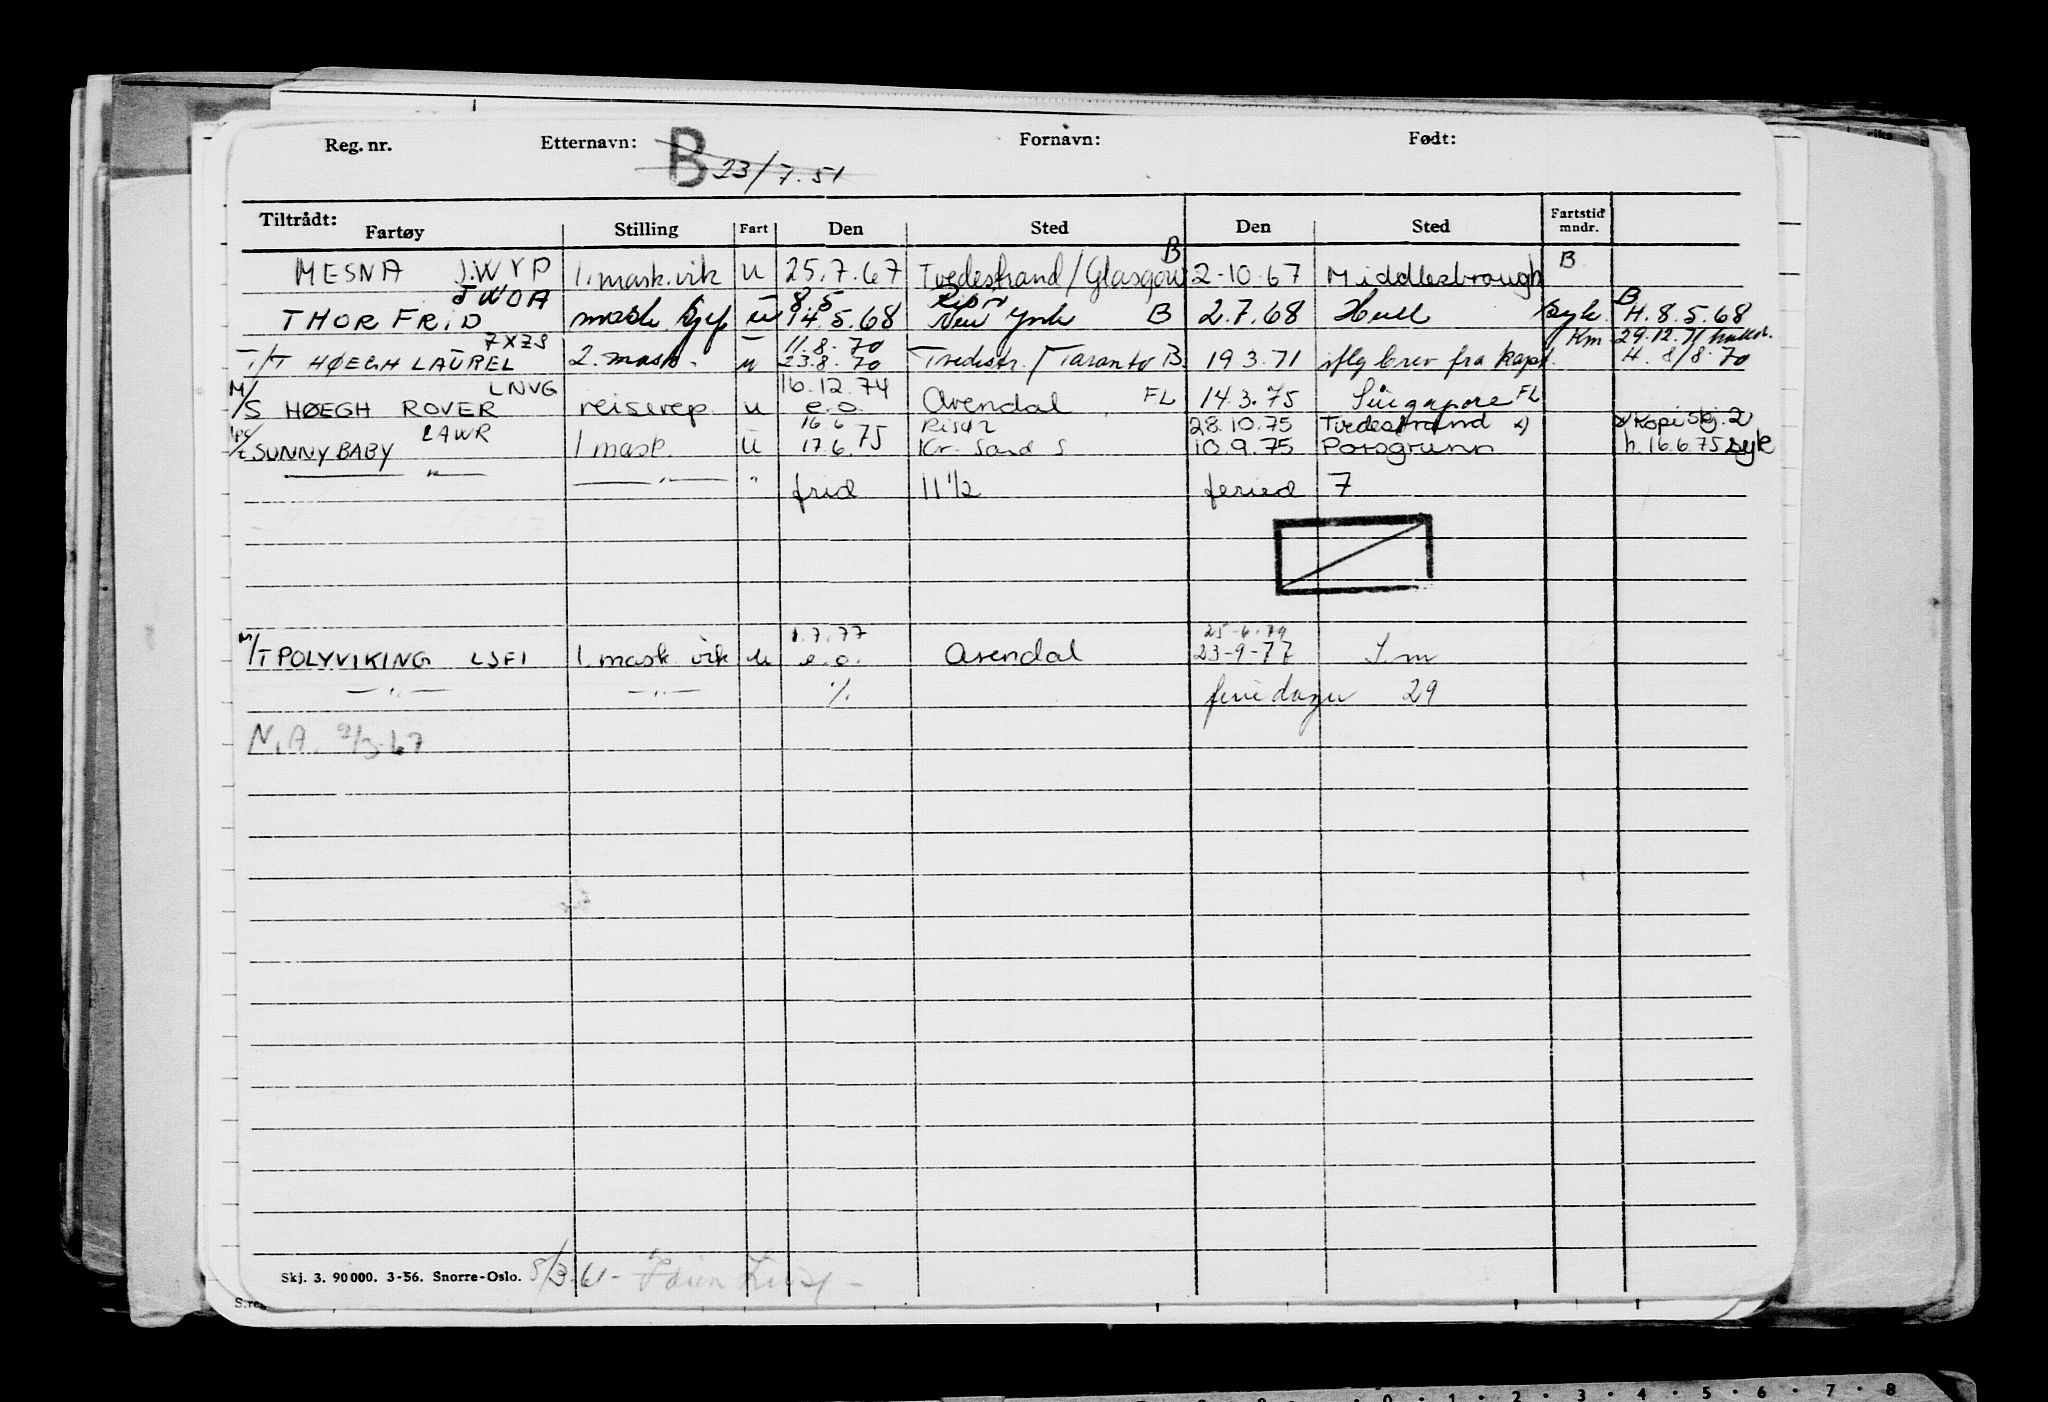 Reg. nr. Etternavn: B 23/7.51 Fornavn: Født:
Tiltrådt:
Fartøy Stilling Fart Den Sted Den Sted Fartstid mndr.
MESNA J.WYP 1. mask. vik u 25.7.67 Tvedestrand/Glasgow B 2-10.67 Middlesbrough B
JWOA 8.5 B
THOR FRID mask. sjef u 14.5.68 New York B 2.7.68 Hull syk. H. 8.5.68
11.8.70 Km 29.12.71
T/T HØEGH LAUREL 2. mask. u 23.8.70 Tvedestr./Taranto B. 19.3.71 iflg brev fra kapt. H. 8/8.70
LNVG 16.12.74
M/S HØEGH ROVER reiserep. u e.o. Arendal FL 14.3.75 Singapore FL
LAWR 16.6 Risør 28.10.75 Tvedestrand x) x) Kopi skj. 2
SUNNY BABY 1 mask. u 17.6.75 Kr. Sand S 10.9.75 Porsgrunn h. 16.6.75 syk
— " — — " — " frid 11 1/2 feried 7
1.7.77 25-6.79
M/T POLYVIKING LSFI 1. mask. vik u e.o. Arendal 23-9-77 S.m
— " — — " — %. feriedager 29
N.A. 9/3-67
Skj. 3. 90000. 3-56. Snorre-Oslo. 8/3.61-
S.reg
0 · 1 · 2 · 3 · 4 · 5 · 6 · 7 · 8